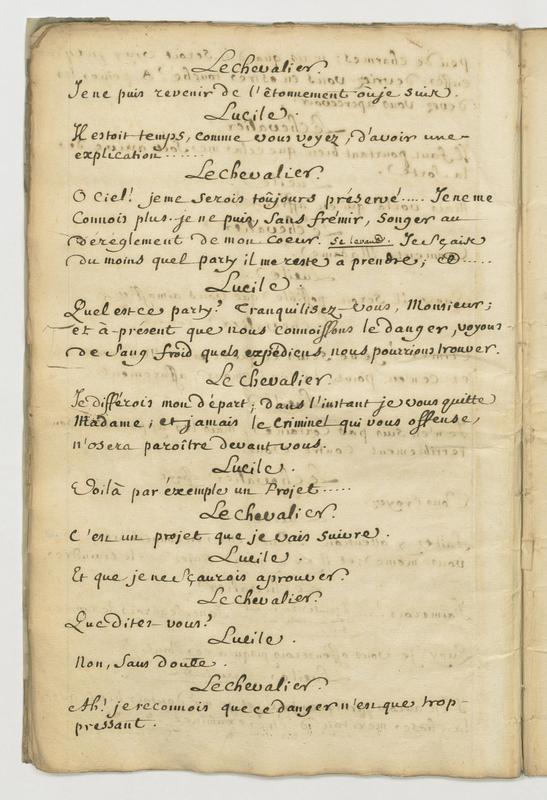 Le Chevalier.
Je ne puis revenir de l'êtonnement où je suis.
Lucile.
Il estoit temps, comme vous voyez, d'avoir une
explication......
Le Chevalier.
O Ciel! je me serois toûjours préservé..... Je ne me
Connois plus. je ne puis, sans frémir, songer au
déréglement de mon Coeur. Se levant. Je sçais
du moins quel party il me reste à prendre;
Lucile.
Quel est ce party? Tranquilisez-vous, Monsieur;
et à-présent que nous connoissons le danger, voyons
de sang froid quels expédiens nous pourrions trouver.
Le Chevalier.
Je différois mon départ; dans l'instant je vous quitte
Madame; et jamais le Criminel qui vous offense,
n'osera paroître devant vous.
Lucile.
Voilà par éxemple un Projet.....
Le Chevalier.
C'est un projet que je vais suivre.
Lucile.
Et que je ne sçaurois aprouver.
Le Chevalier.
Que dites-vous?
Lucile.
Non, sans doute.
Le Chevalier.
Ah! je reconnois que ce danger n'est que trop
pressant.